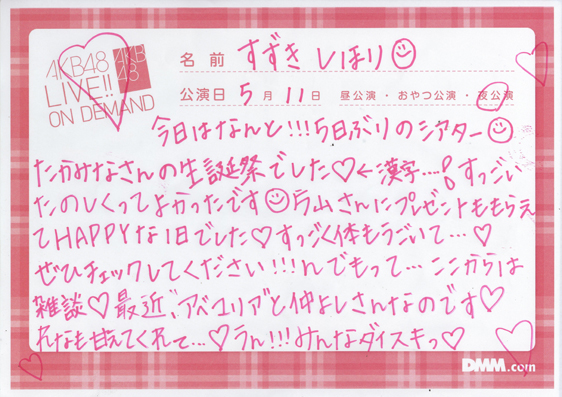 AKB48
LIVE!!
ON DEMAND
AKB
48
名前 すずき しほり
公演日 5月11日 昼公演・おやつ公演・夜公演
今日はなんと!!!5日ぶりのシアター
たかみなさんの生誕祭でした♡←漢字…。すっごい
たのしくってよかったです 片山さんにプレゼントももらえ
てHAPPYな1日でした♡すっごく体もうごいて…♡
ぜひチェックしてください!!!んでもって…ここからは
雑談♡最近、"アベマリア"と仲よしさんなのです♡
れなも甘えてくれて…♡うん!!!みんなダイスキっ♡
DMM.com